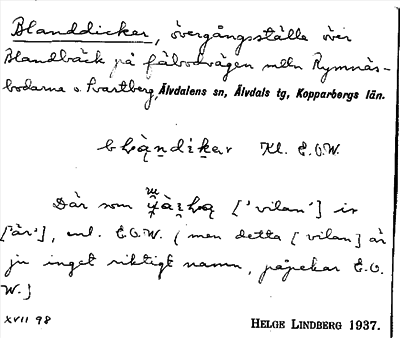 Blanddicker, övergångsställe över
Blandbäck på fäbodvägen mellan Rymnäs-
bodarna o. Svartberg, Älvdalens sn, Älvdals tg, Kopparbergs län.
Kl. E.O.W.
Där som ['vilan'] ir
['är'], enl. E.O.W. (men detta [vilan] är
ju inget riktigt namn, påpekar E.O.
W.)
XVII 98
HELGE LINDBERG 1937.